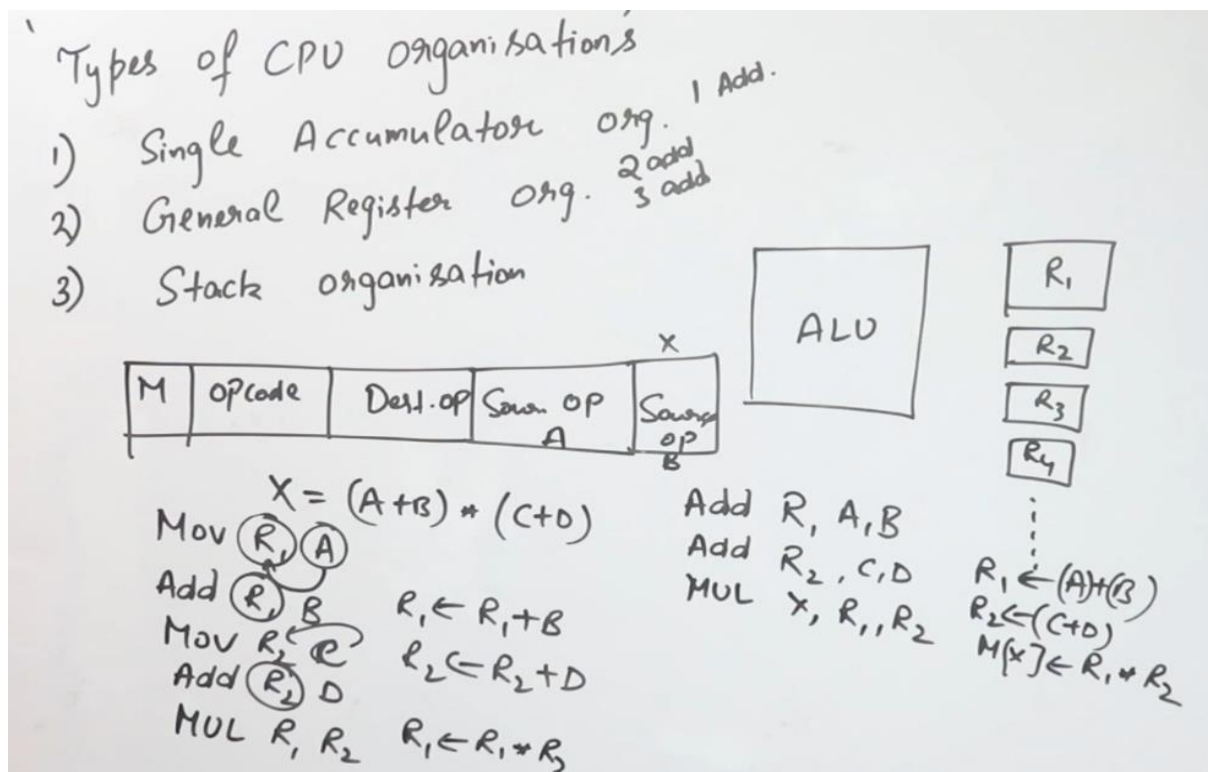 Types of CPU organisations
1) Single Accumulator org. 1 Add.
2) General Register org. 2 add
3 add
3) Stack organisation
ALU
R1
R2
R3
R4
X
M opcode Dest.op Sour. OP A Source OP B
X = (A+B) * (C+D)
Mov R1 A
Add R1 B R1 ← R1+B
Mov R2 C
Add R2 D R2 ← R2+D
MUL R1 R2 R1 ← R1 * R2
Add R1 A,B R1 ← (A)+(B)
Add R2, C,D R2 ← (C+D)
MUL X, R1, R2 M[X] ← R1 * R2